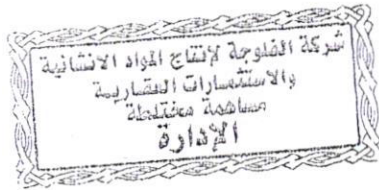 شركة الفلوجة لإنتاج المواد الانشائية
والاستثمارات العقارية
مساهمة مختلطة
الإدارة